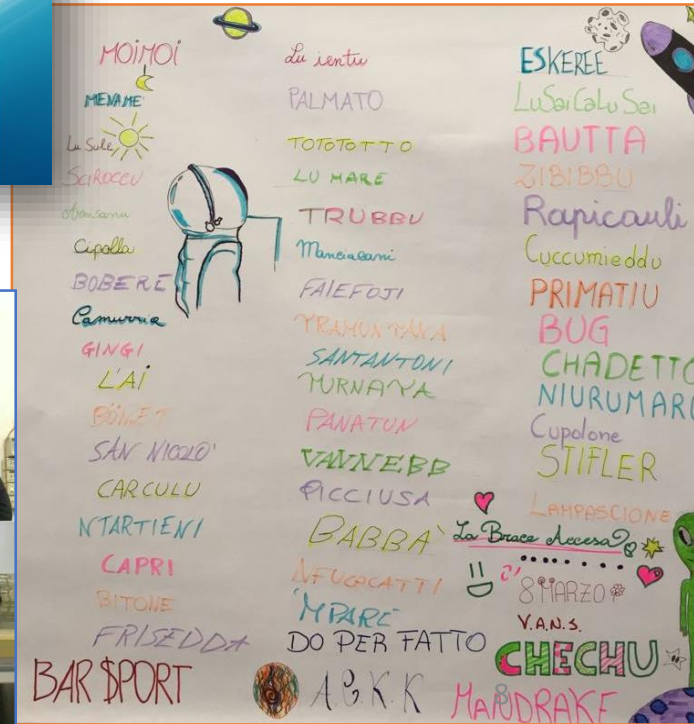 MOIMOI
MENAME
Lu Sule
SCIROCCU
Cipolla
BOBERE
Camurria
GINGI
L'AI
SAN NICOLO'
CARCULU
NTARTIENI
CAPRI
BITONE
FRISEDDA
BAR $PORT
Lu ientu
PALMATO
TOTOTOTTO
LU MARE
TRUBBU
Manciacani
FAIEFOJI
TRAMUNTANA
SANTANTONI
PANATUN
VANNEBB
PICCIUSA
BABBA'
NFUCACATTI
'MPARE
DO PER FATTO
ESKEREE
LuSaiCaLuSai
BAUTTA
ZIBIBBU
Rapicauli
Cuccumieddu
PRIMATIU
BUG
CHADETTO
NIURUMARU
Cupolone
STIFLER
LAMPASCIONE
La Brace Accesa
8 MARZO
V.A.N.S.
CHECHU
MANDRAKE